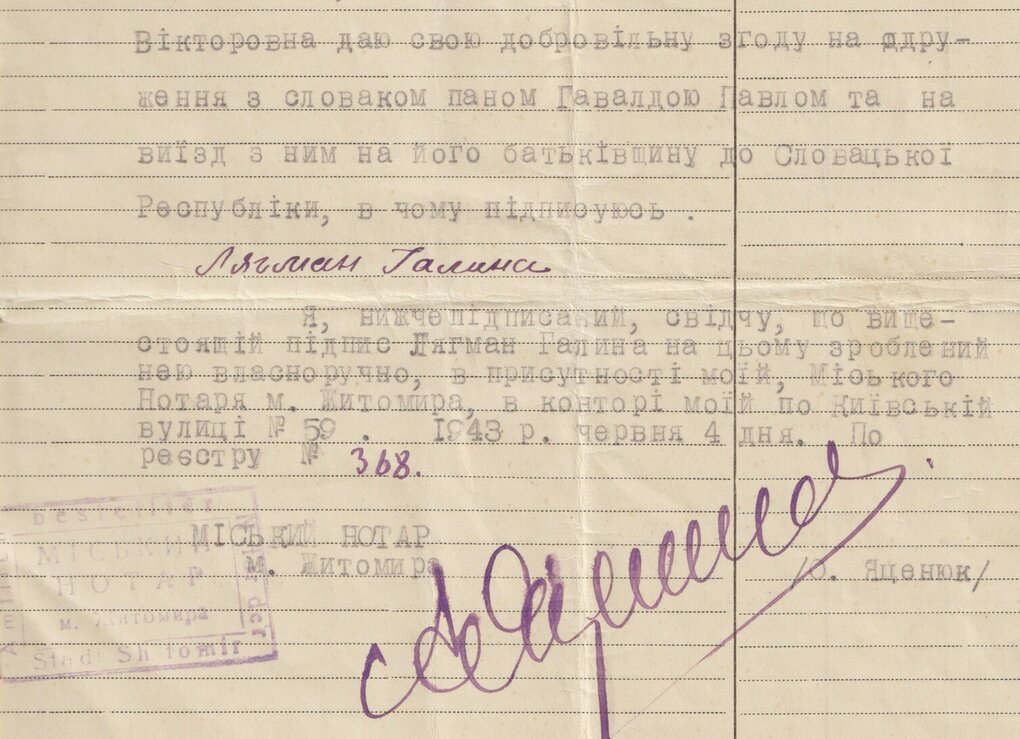 Вікторовна даю свою добровільну згоду на одру-
ження з словаком паном Гавалдою Павлом та на
виїзд з ним на його батьківщину до Словацької
Республіки, в чому підписуюсь .
Лягман Галина
Я, нижчепідписаний, свідчу, що вище-
стоящій підпис Лягман Галина на цьому зроблений
нею власноручно, в присутності моїй, Міського
Нотаря м. Житомира, в конторі моїй по Київській
вулиці № 59 . 1943 р. червня 4 дня. По
реєстру № 368.
МІСЬКИЙ НОТАР
м. Житомира
/Ю. Яценюк/
bestellter
МІСЬКИЙ
НОТАР
м. Житомира
Stadt Shitomir
Amtlich
der